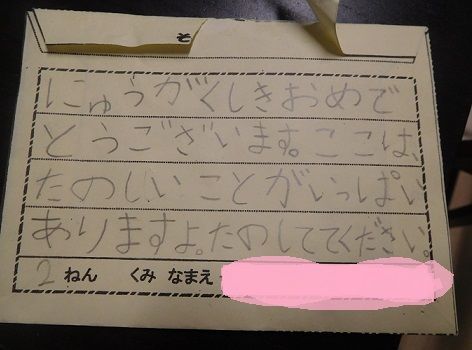 そ
にゅうがくしきおめで
とうございます。ここは、
たのしいことがいっぱい
ありますよ。たのしてください。
2ねん くみ なまえ